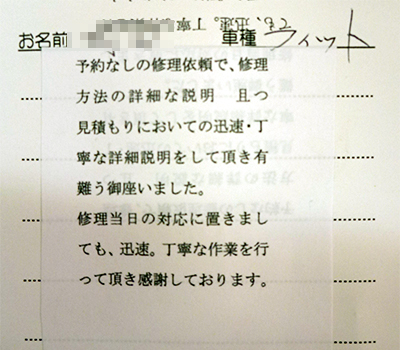 お名前 車種 フィット
予約なしの修理依頼で、修理
方法の詳細な説明 且つ
見積もりにおいての迅速・丁
寧な詳細説明をして頂き有
難う御座いました。
修理当日の対応に置きまし
ても、迅速。丁寧な作業を行
って頂き感謝しております。